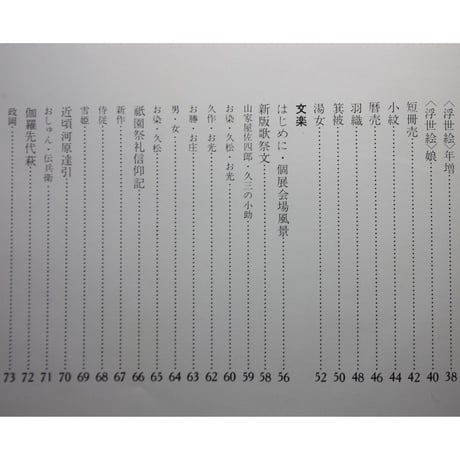 〈浮世絵〉年増……38
〈浮世絵〉娘……40
短冊売……42
小紋……44
暦売……46
羽織……48
箕被……50
湯女……52
文楽
はじめに・個展会場風景……56
新版歌祭文……58
山家屋佐四郎・久三の小助……59
お染・久松・お光……60
久作・お光……62
お勝・お庄……63
男・女……64
お染・久松……65
祇園祭礼信仰記……66
新作……67
侍従……68
雪姫……69
近頃河原達引……70
おしゅん・伝兵衛……71
伽羅先代萩……72
政岡……73